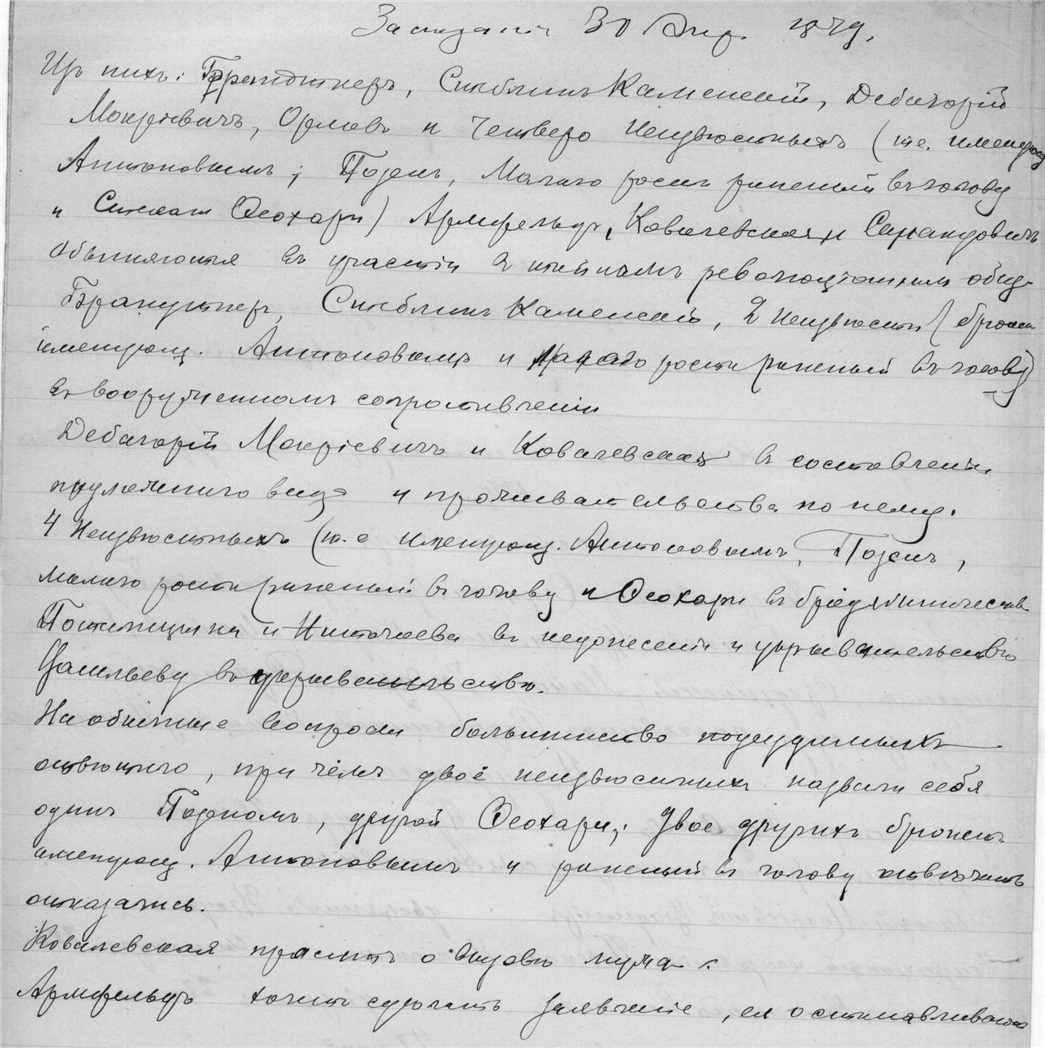 Заседаніе 30 Апр. 1879.
Изъ нихъ: Брантнеръ, Стеблинъ Каменскій, Дебагорій
Мокріевичъ, Орловъ и четверо неизвѣстныхъ (т.е. именующ.
Антоновымъ; Позенъ, малаго роста раненый въ голову
и Феохари) Армфельдъ, Ковалевская и Сарандовичъ
обвиняются въ участіи въ тайномъ революціонномъ общ.
Брантнеръ, Стеблинъ Каменскій, 2 неизвѣстн. (
именующ. Антоновымъ и малаго роста раненый въ голову)
въ вооруженномъ сопротивленіи
Дебагорій Мокріевичъ и Ковалевская въ составленіи
подложнаго вида и проживательства по нему.
4 неизвѣстныхъ (т.е именующ. Антоновымъ, Позенъ,
малаго роста раненый въ голову и Феохари въ бродяжничествѣ
Потылицына и въ недонесеніи и укрывательствѣ
въ укрывательствѣ.
На обычные вопросы большинство подсудимыхъ
отвѣтило, при чёмъ двоё неизвѣстныхъ назвали себя
одинъ Позеномъ, другой Феохари; двое другихъ
именующ. Антоновымъ и раненый въ голову отвѣчать
отказались.
Ковалевская проситъ о вызовѣ мужа.
Армфельдъ хочетъ сдѣлать заявленіе, ея останавливаютъ